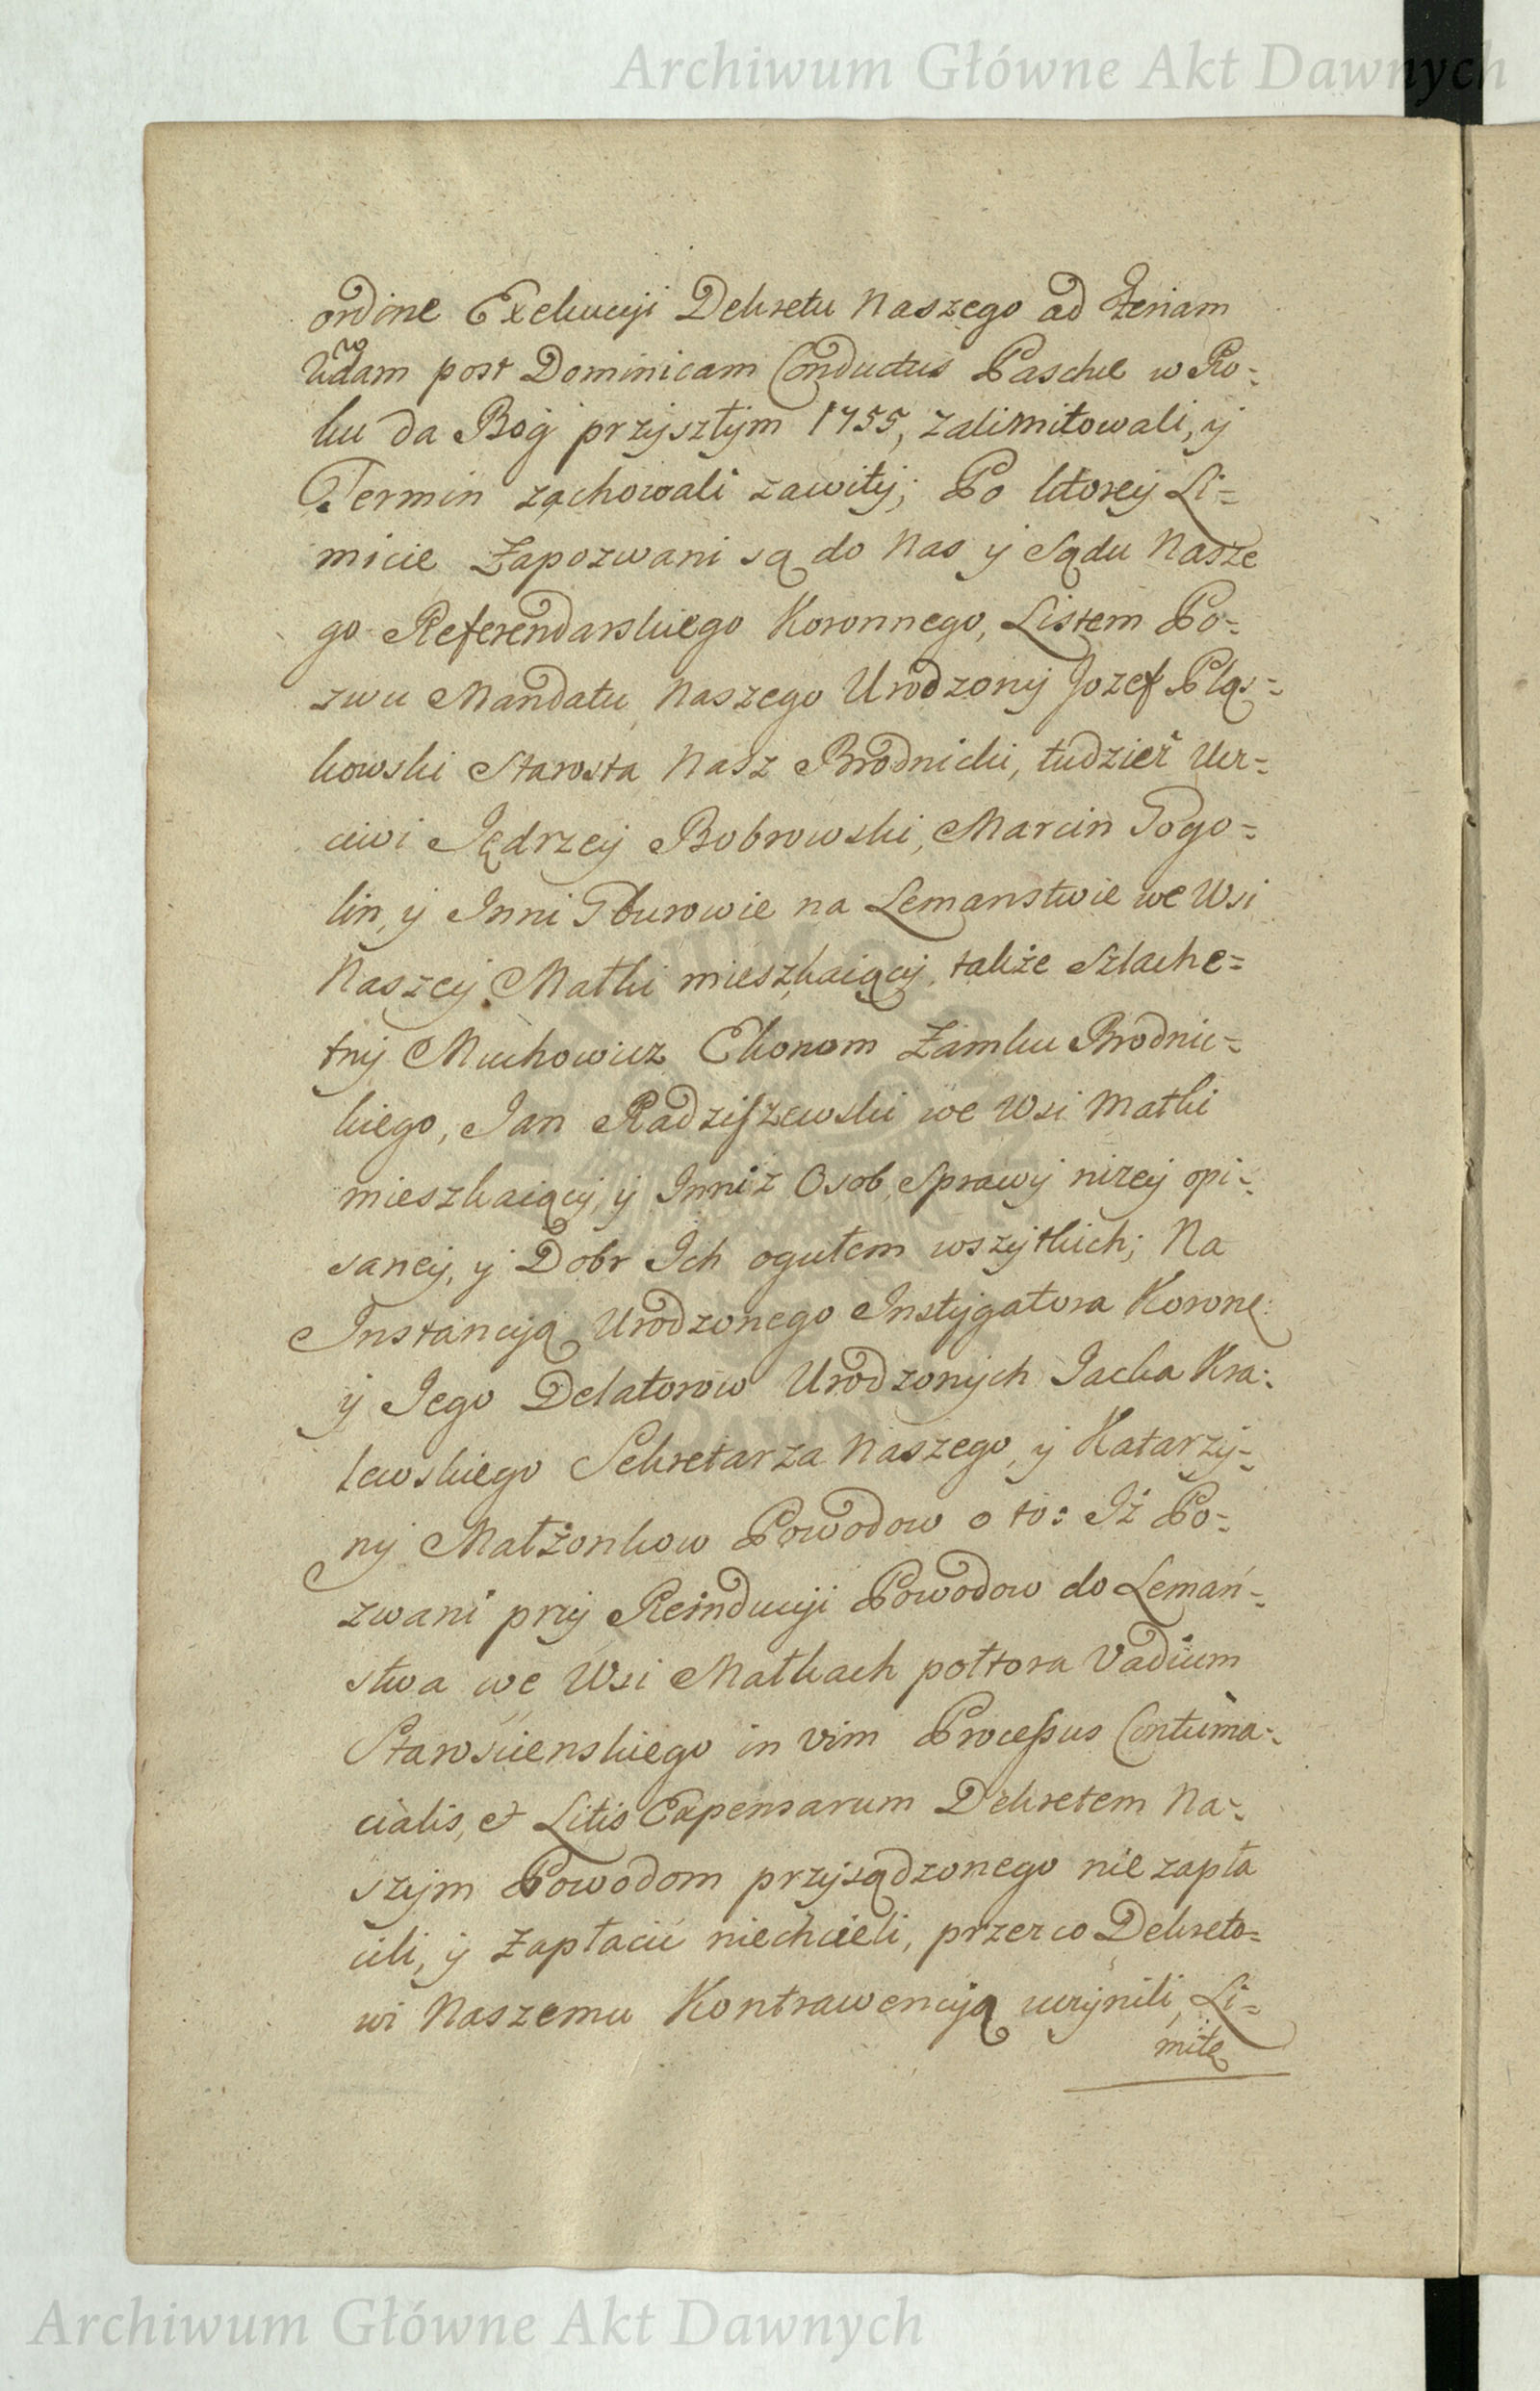 Archiwum Główne Akt Dawnych
ordine Exekucyi Dekretu Naszego ad feriam
2dam post Dominicam Conductus Paschæ w Ro=
ku da Bog przyszłym 1755, zalimitowali, y
Termin zachowali zawity; Po ktorey Li=
micie Zapozwani są do Nas y Sądu Nasze
go Referendarskiego Koronnego, Listem Po=
zwu Mandatu Naszego Urodzony Jozef Pląs=
kowski Starosta Nasz Brodnicki, tudzież Ucz=
ciwi Jędrzey Bobrowski, Marcin Pogo=
lin, y Inni Gburowie na Lemanstwie we Wsi
Naszey Małki mieszkaiący, także Szlache=
tny Muchowicz Ekonom Zamku Brodnic=
kiego, Jan Radziszewski we Wsi Małki
mieszkaiący, y Inni z Osob, Sprawy niżey opi=
saney, y Dobr Ich ogułem wszytkich; Na
Instancyą Urodzonego Instygatora Koronę:
y Jego Delatorow Urodzonych Jacka Kra=
lewskiego Sekretarza Naszego, y Katarzy=
ny Małżonkow Powodow o to: Iż Po=
zwani przy Reindukcyi Powodow do Lemań=
stwa we Wsi Małkach połtora Vadium
Starościenskiego in vim Processus Contuma=
cialis, et Litis Expensarum Dekretem Na=
szym Powodom przysądzonego nie zapła
cili, y Zapłacić niechcieli, przez co Dekreto=
wi Naszemu Kontrawencyą uczynili, Li=
mitę
Archiwum Główne Akt Dawnych